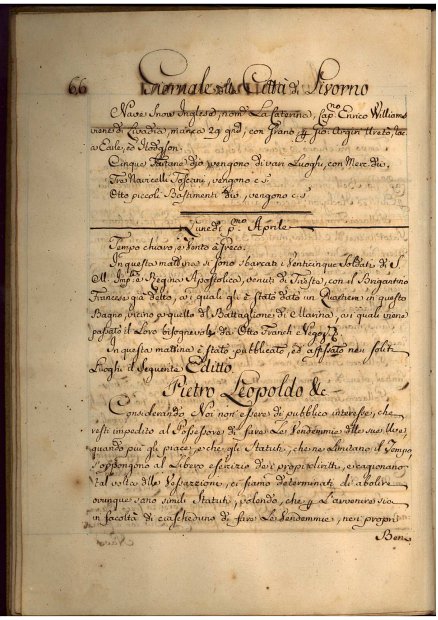 66 Giornale della Città di Livorno
Nave Snow Inglese, nom.ta La Caterina, Cap.no Enrico Williams
viene di Livadia, manca 29 gni, con Grano, p
a Earle, ed Hodgson.
Cinque Tartane d.io vengono di vari Luoghi, con Merc. div.
Tre Navicelli Toscani, vengono c.s.
Otto piccoli Bastimenti div. vengono c.s.
Lunedì p.mo Aprile
Tempo chiaro, e Vento a Greco.
In questa mattina si sono sbarcati i Venticinque Soldati di S.
M. Imp.le e Regina Apostolica, venuti di Trieste, con il Brigantino
Francese già detto, ai quali gli è stato dato un Quartiere in questo
Bagno, vicino a quello del Battaglione di Marina, ai quali viene
passato il Loro bisognevole da Otto Franck e
In questa mattina è stato pubblicato, ed affissato nei soliti
Luoghi il seguente Editto
Pietro Leopoldo &c
Considerando Noi non essere di pubblico interesse, che
resti impedito al Possessore di fare le Vendemmie alle sue Uve,
quando più gli piace, e che gli Statuti, che ne limitano il Tempo,
s'oppongono al Libero esercizio dei proprietari, e cagionano
tal volta delle Vessazioni, ci siamo determinati di abolire
ovunque sono simili Statuti, volendo, che p L'avvenire sia
in facoltà di ciascheduno di fare Le Vendemmie, nei propri
Beni